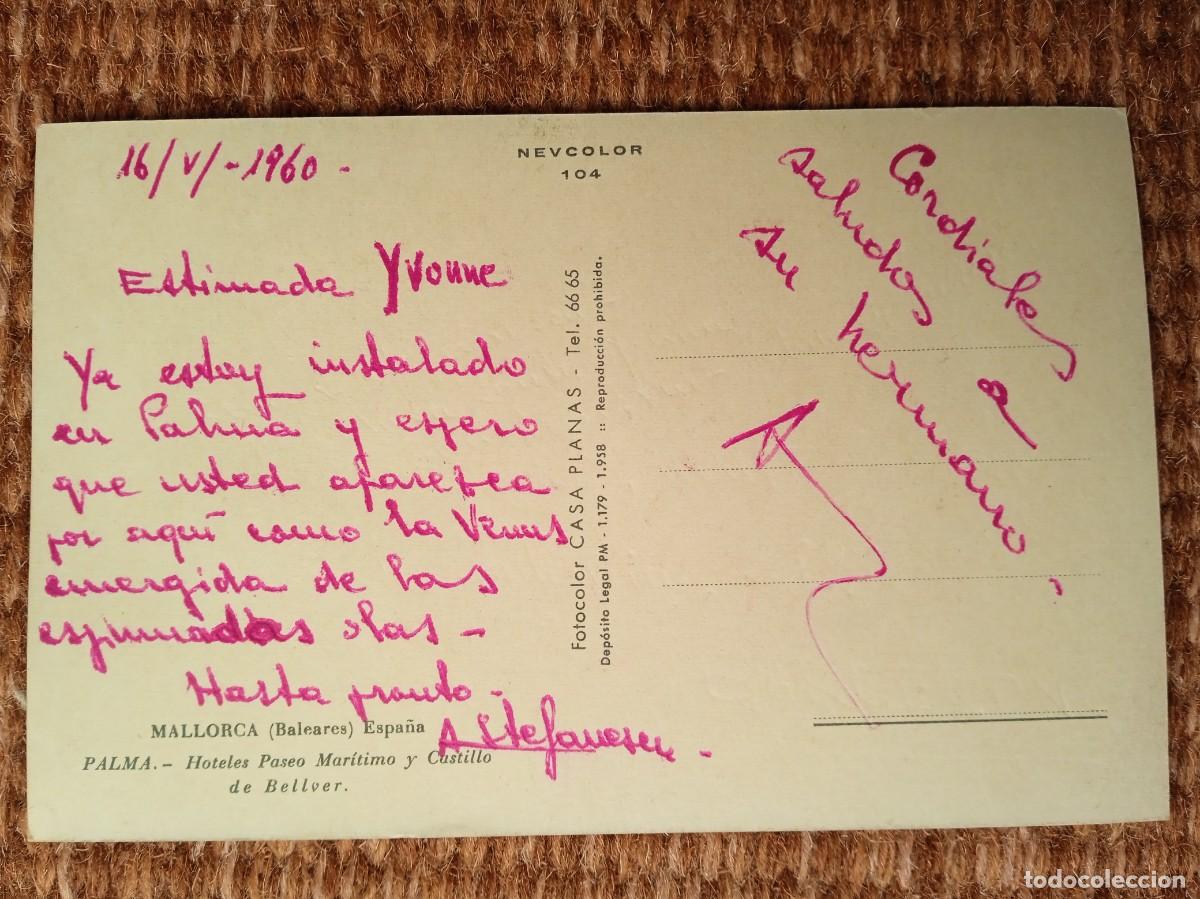 16/V/-1960-
NEVCOLOR
104
Estimada Yvonne
Ya estoy instalado
en Palma y espero
que usted aparezca
por aquí como la Venus
emergida de las
espumadas olas -
Hasta pronto -
A Stefanescu -
MALLORCA (Baleares) España
PALMA. - Hoteles Paseo Marítimo y Castillo
de Bellver.
Fotocolor CASA PLANAS - Tel. 66 65
Depósito Legal PM - 1.179 - 1.958 :: Reproducción prohibida.
Cordiales
saludos a
su hermano.
todocoleccion